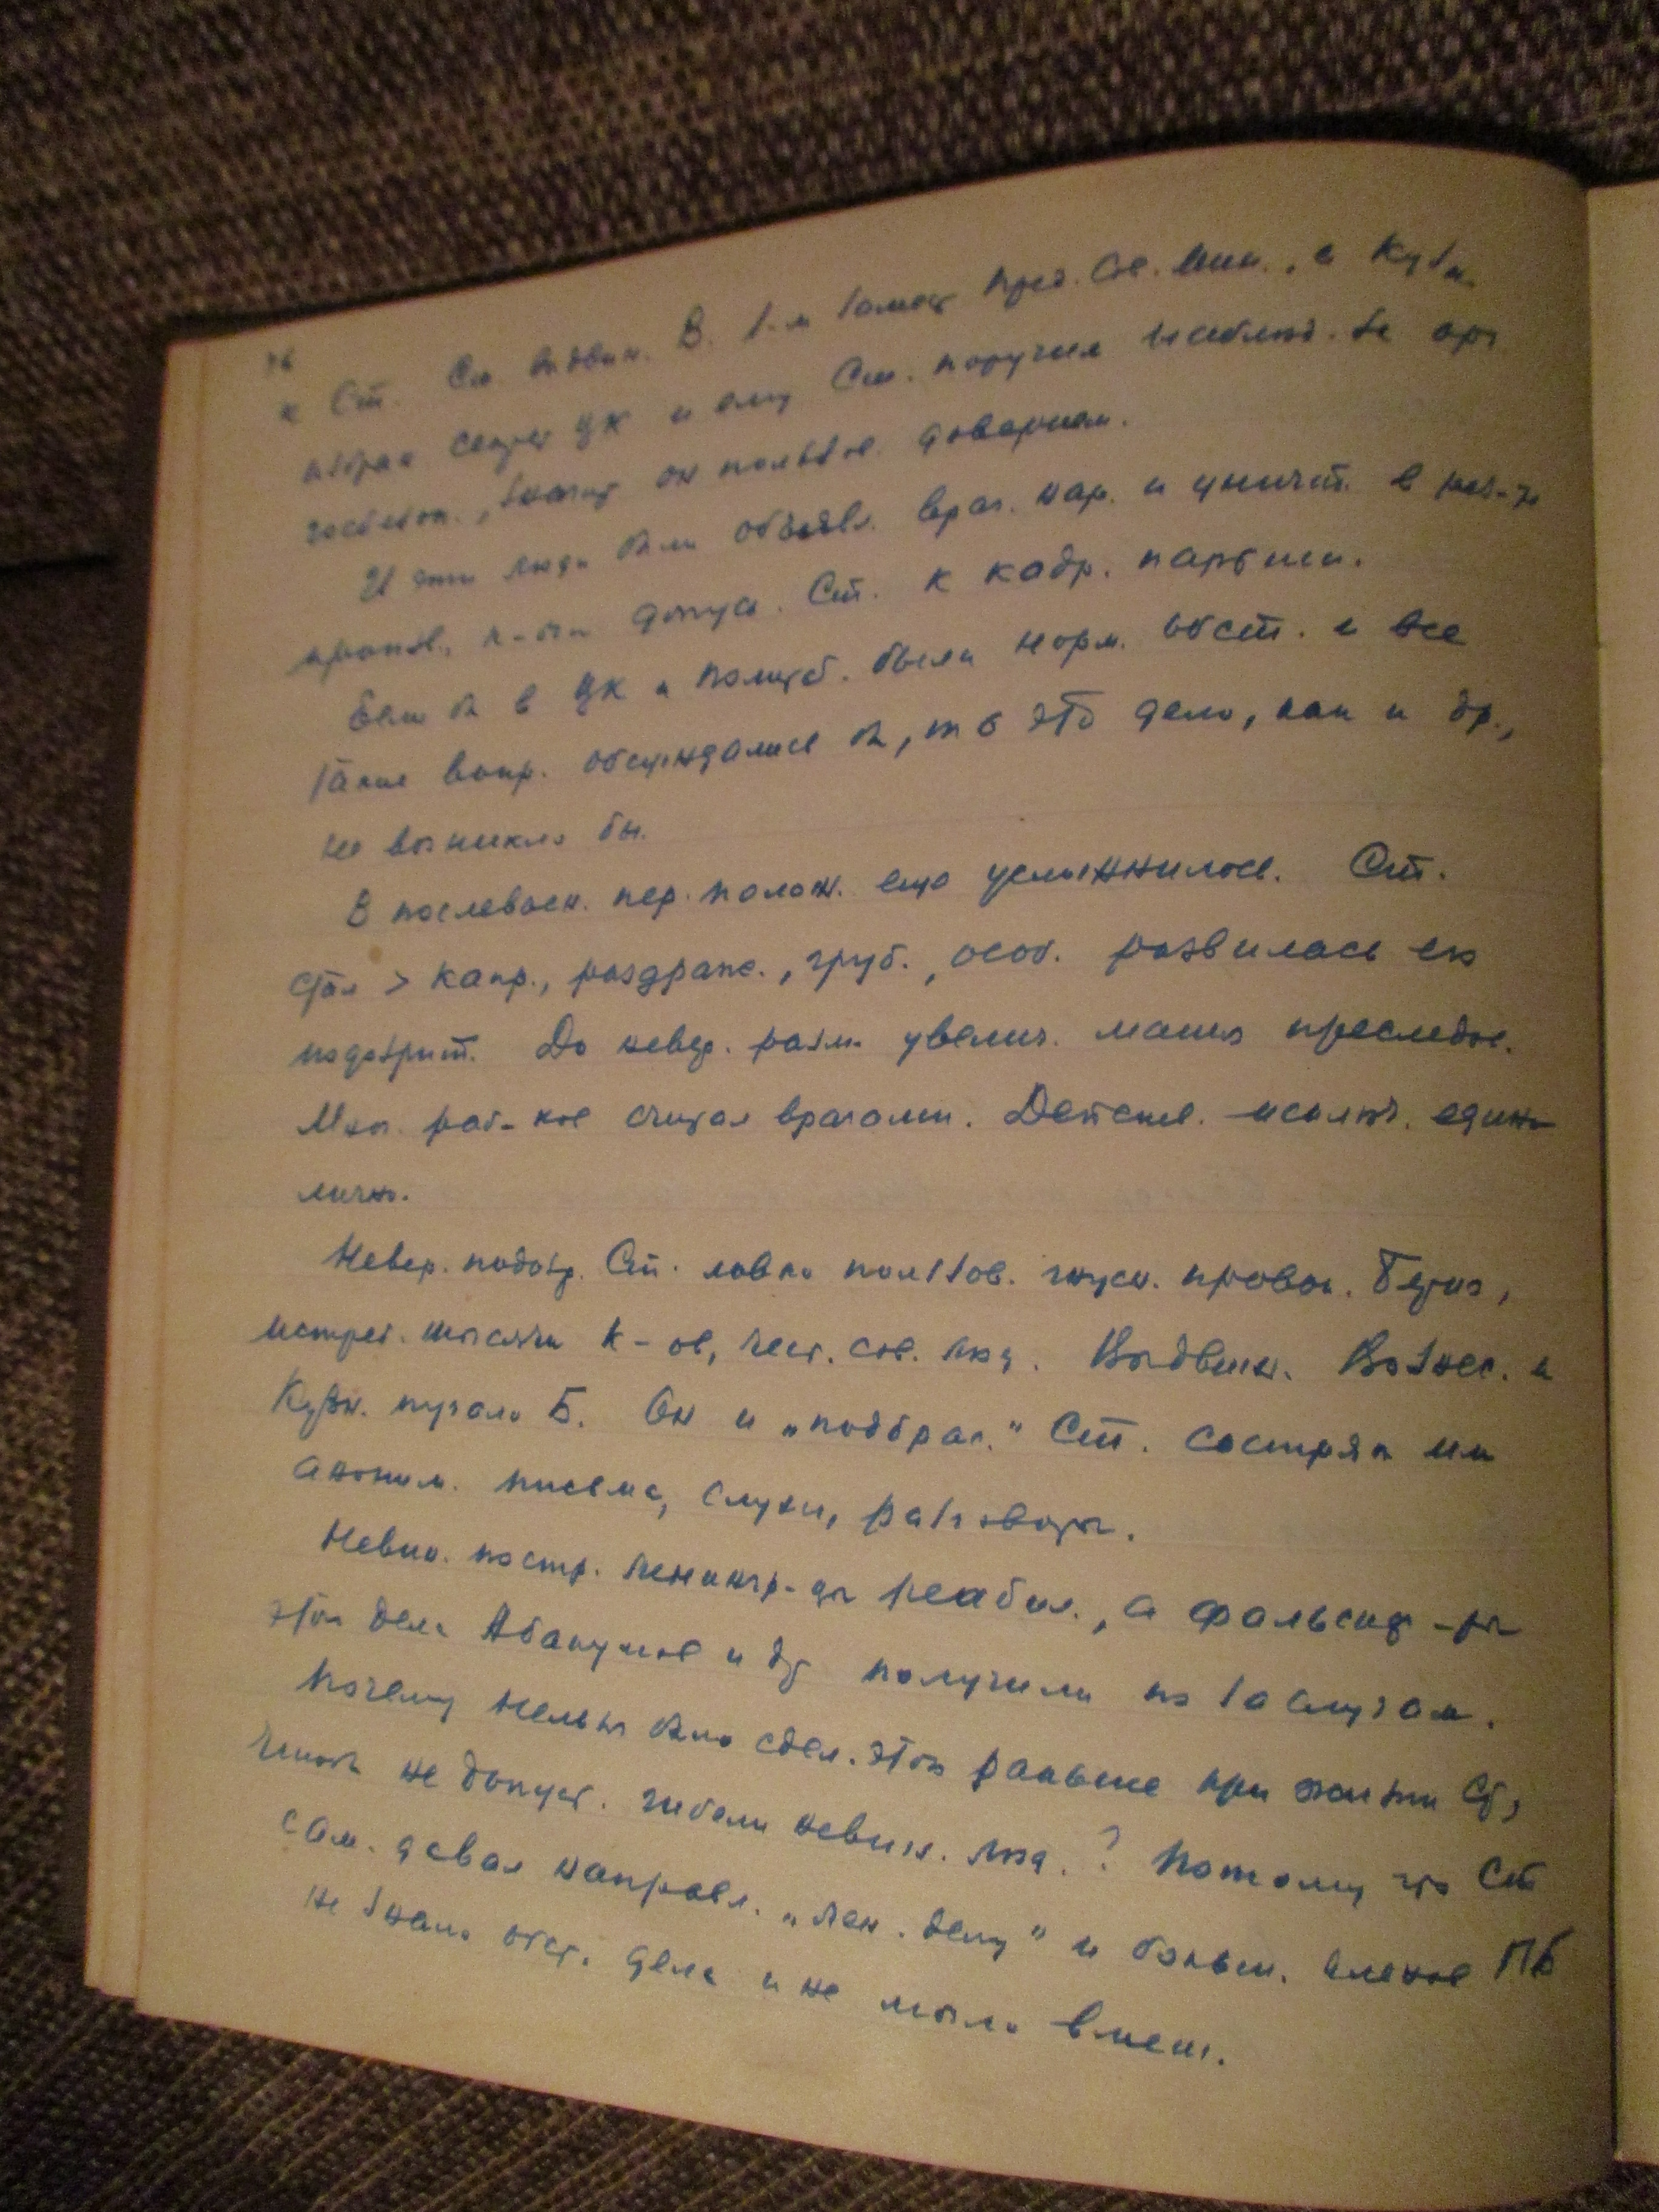 к Ст. Ст. выдвин. В. 1-м замест. Пред. Сов. Мин., а Кузн.
избран секрет ЦК и ему Ст. поручил наблюд. за орг
госбезоп., значит он пользов. доверием.
И эти люди были объявл. враг. нар. и уничт. в рез-те
произв., к-рый допуск. Ст. к кадр. партии.
Если бы в ЦК и политб. были норм. обст. и все
такие вопр. обсуждались бы, то б это дело, как и др.,
не возникло бы.
В послевоен. пер. полож. еще усложнилось. Ст.
стал > капр., раздраж., груб., особ. развилась его
подозрит. До невер. разм. увелич. мания преследов.
Мног. раб-ков считал врагами. Действов. исключ. едино
лично.
Невер. подозр. Ст. ловко пользов. гнусн. провок. Берия,
истреб. тысячи к-ов, чест. сов. люд. Выдвиж. Вознес. и
Кузн. пугало Б. Он и „подбрас." Ст. состряп им
аноним. письма, слухи, разговоры.
Невин. постр. ленингр-цы реабил., а фальсиф-ры
этого дела Абакумов и др получили по заслугам.
Почему нельзя было сдел. этого раньше при жизни Ст,
чтобы не допуст. гибели невин. люд.? Потому что Ст
сам. давал направл. „лен. делу" и больш. членов ПБ
не знало обст. дела и не могло вмеш.